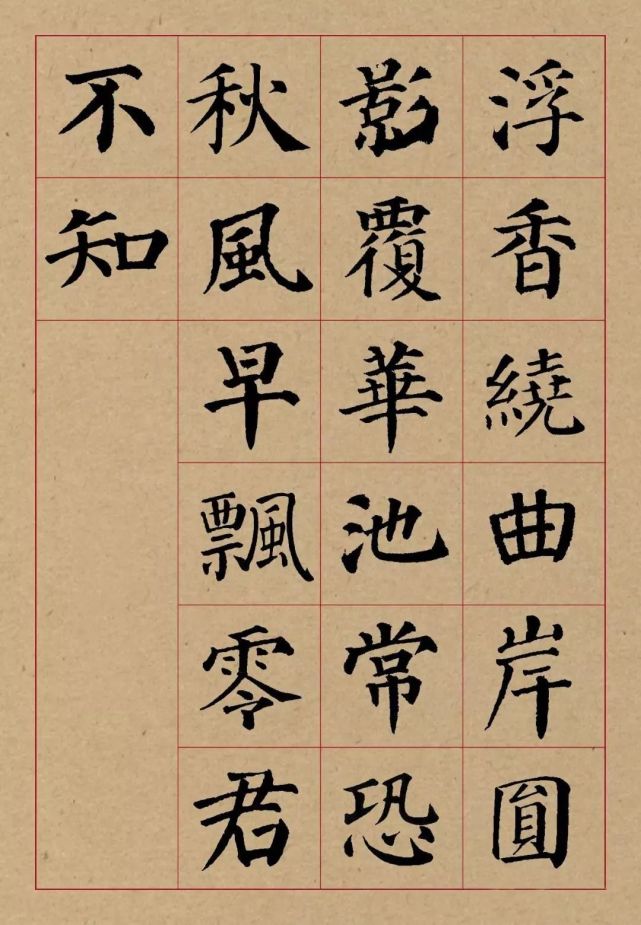 浮香繞曲岸圓
影覆華池常恐
秋風早飄零君
不知